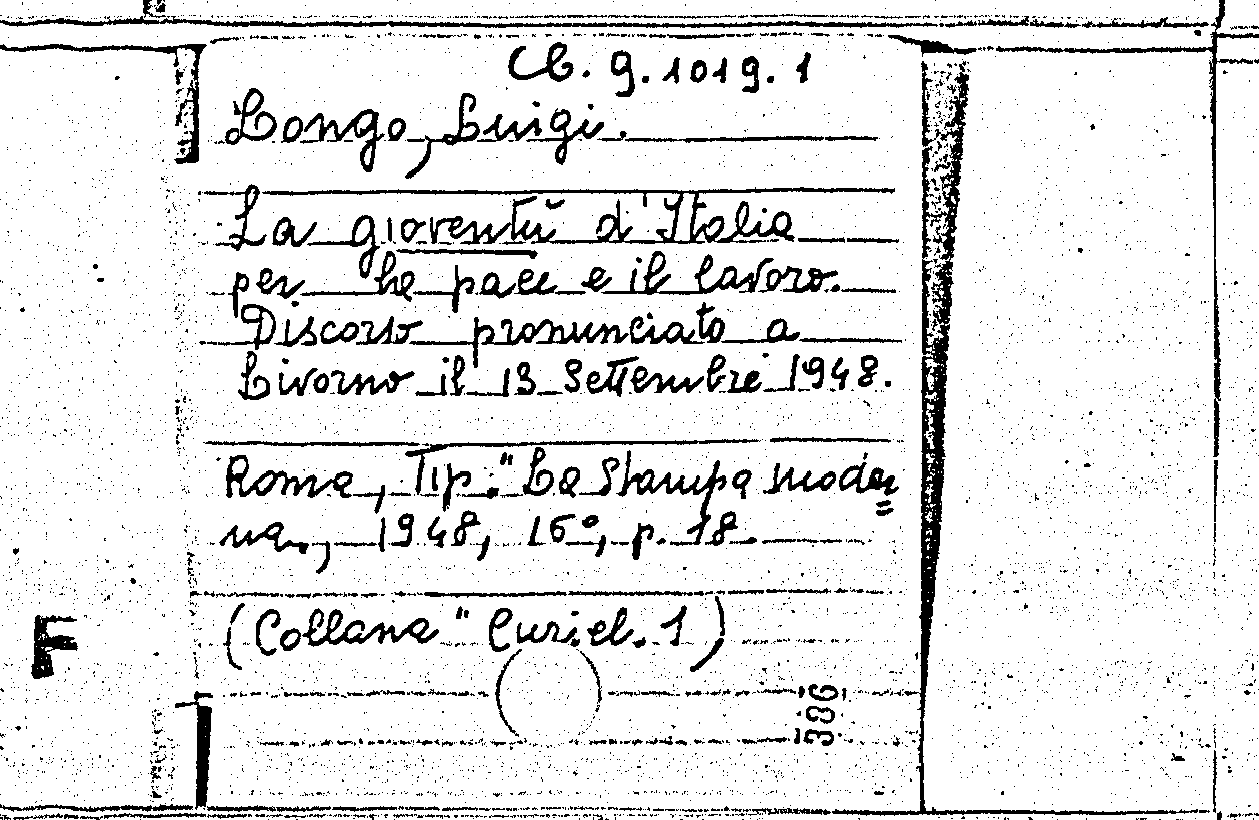 Cb. 9.1019.1
Longo, Luigi.
La gioventù d'Italia
per la pace e il lavoro.
Discorso pronunciato a
Livorno il 13 Settembre 1948.
Roma, Tip. "La Stampa moder=
na., 1948, 16°, p. 18.
(Collana " Curiel. 1)
F
336